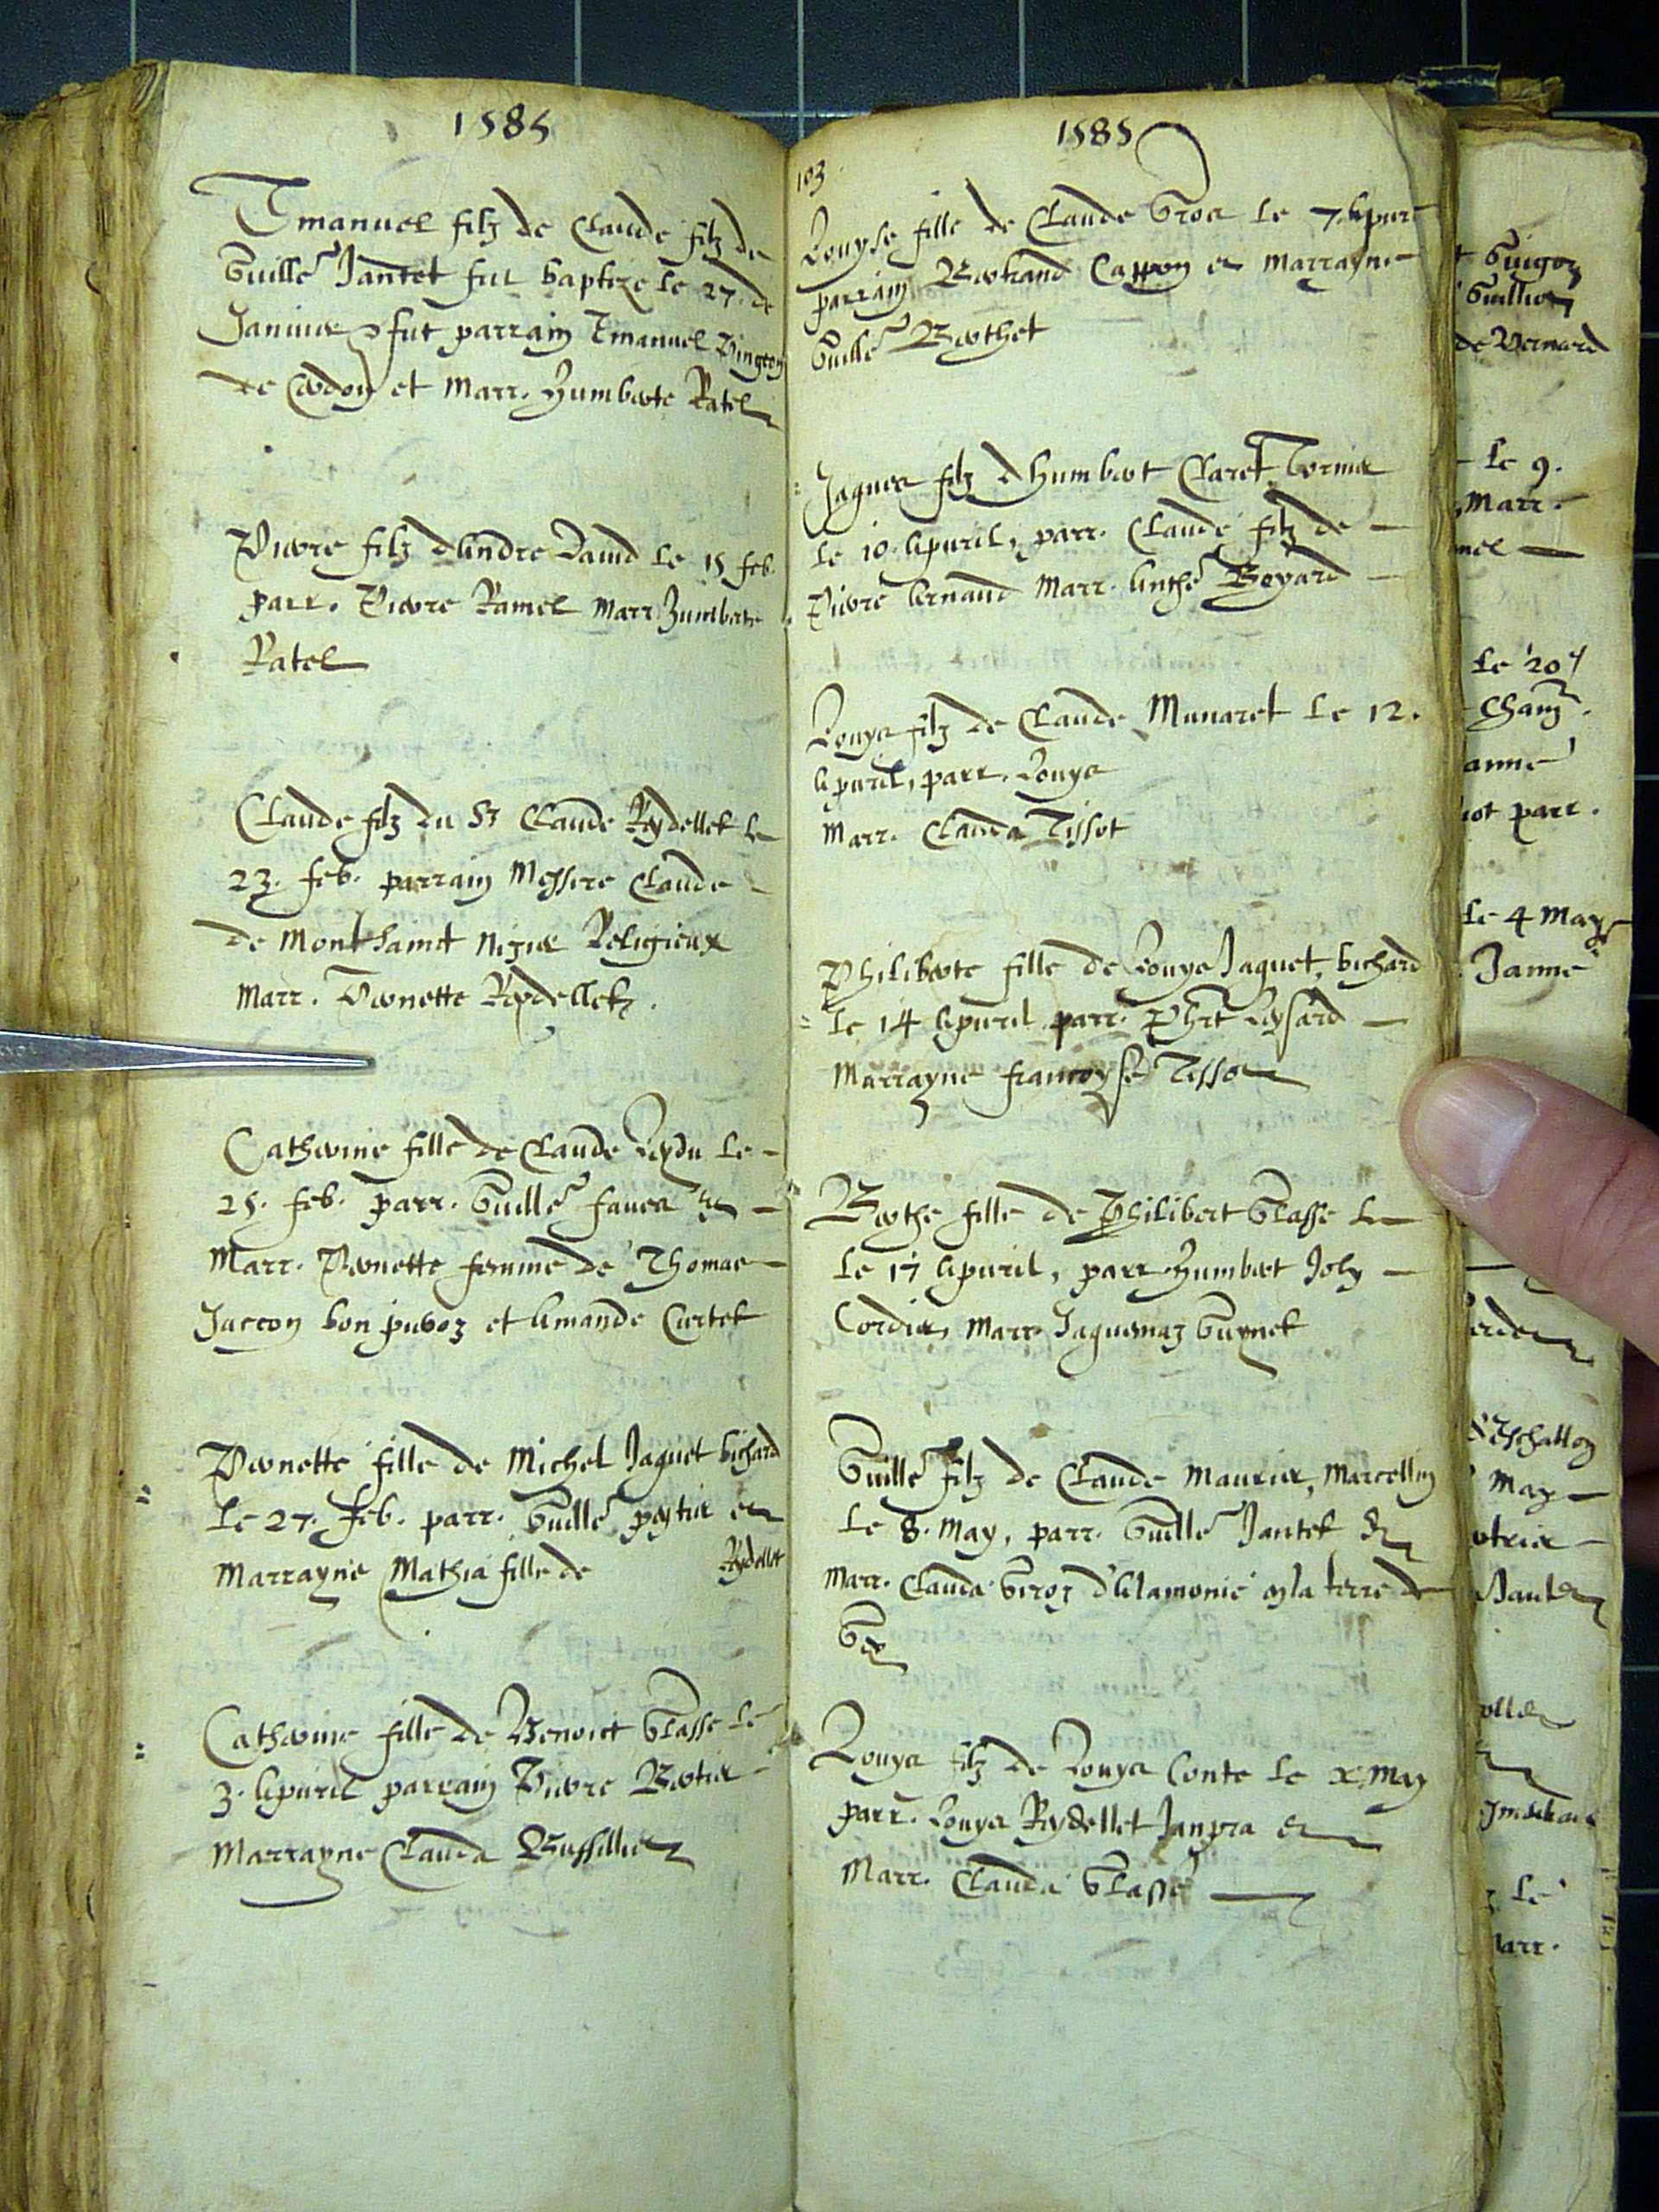 1585
Emanuel filz de Claude filz de
Guille Jantet fut baptize le 27. de
Janvier & fut parrain Emanuel
de Cerdon et Marr. Humberte Ratel
Pierre filz d'Andre David le 15 feb.
parr. Pierre Ramel Marr. Humberte
Ratel
Claude filz du Sr Claude Reydellet le
23. feb. parrain Messire Claude
de Montsainct Nizier Religieux
Marr. Pernette Reydellet.
Catherine fille de Claude Leydu le
25. feb. parr. Guille favre &
Marr. Pernette femme de Thomas
Jaccon bon puvoz et Amande Curtet
Pernette fille de Michel Jaquet bichard
le 27. feb. parr. Guille peytier et
Marrayne Mathia fille de Reydellet
Catherine fille de Benoict Glasse le
3. Apvril parrain Pierre Bertier
Marrayne Clauda Bussillier
1585
103
Louyse fille de Claude Gros le 7 Apvril
parrain Bertrand Cappon et Marrayne
Guille Berthet
Jaques filz d'humbert Claret Cornier
le 10 Apvril, parr. Claude filz de
Pierre bernaud Marr. Anthe Boyard
Louys filz de Claude Munaret le 12.
Apvril, parr. Louys
Marr. Clauda Tissot
Philiberte fille de Louys Jaquet, bichard
le 14 Apvril parr. Phrt Leysard
Marrayne francoyse Tissot
Berthe fille de Philibert Glasse le
le 17 Apvril, parr. Humbert Joly
Cordier, Marr. Jaquemaz Guynet
Guille filz de Claude Maurier, Marcellin
le 8. May, parr. Guille Jantet &
Marr. Clauda Giroz d'Alamonie en la terre de
Gex
Louys filz de Louys Conte le x May
parr. Louys Reydellet Janpra et
Marr. Clauda Glasse
Guigon
Guillion
de Bernard
le 9.
Marr.
mel
le 20
anne
parr.
le 4 May
Janne
May
le
Marr.